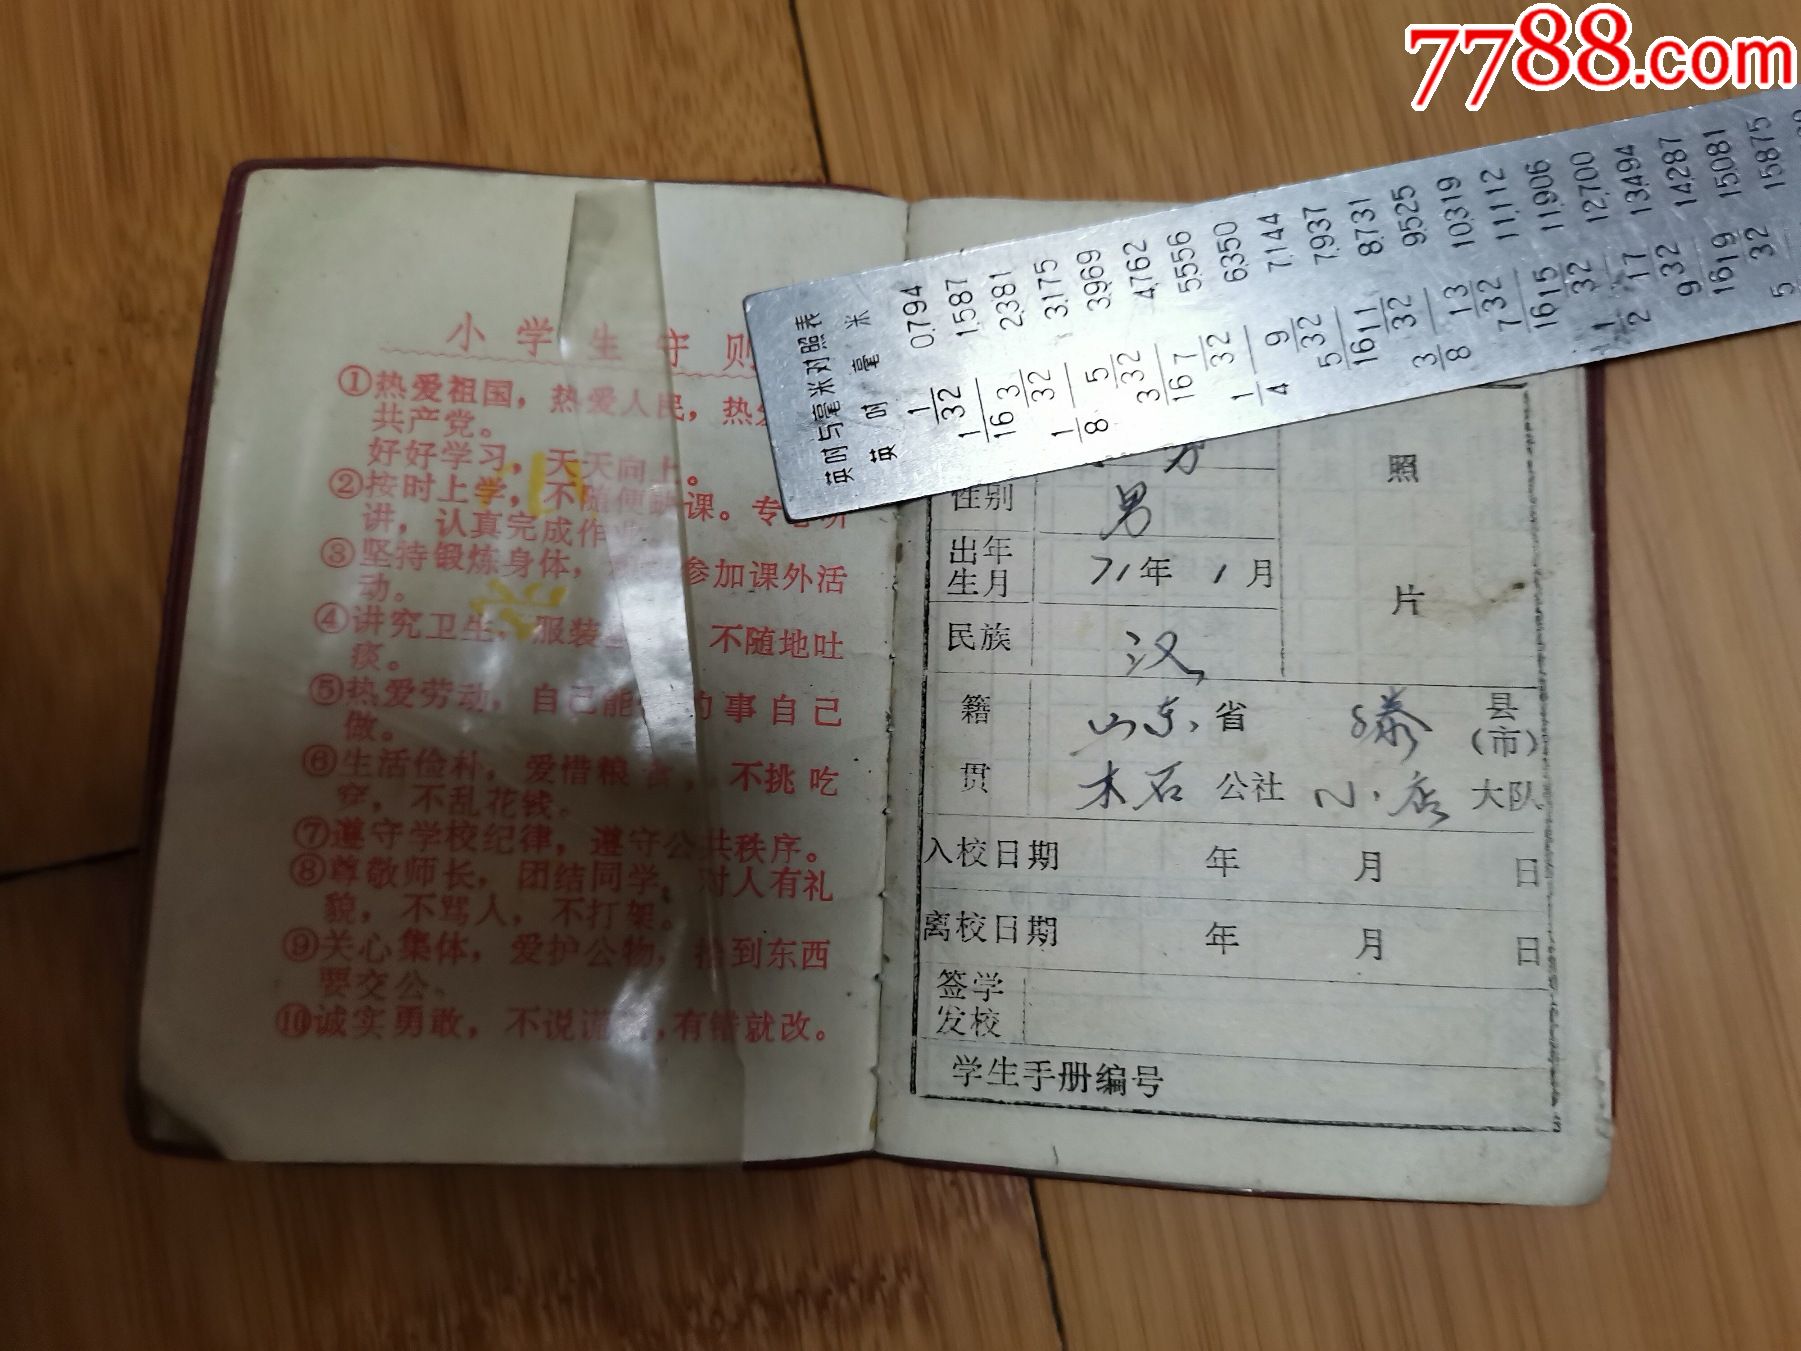 7788.com
英吋与毫米对照表
英 吋 毫 米
1/32 0.794
1/16 1.587
3/32 2.381
1/8 3.175
5/32 3.969
3/16 4.762
7/32 5.556
1/4 6.350
9/32 7.144
5/16 7.937
11/32 8.731
3/8 9.525
13/32 10.319
7/16 11.112
15/32 11.906
1/2 12.700
17/32 13.494
9/16 14.287
19/32 15.081
5 15.875
小学生守则
①热爱祖国，热爱人民，热
共产党。
好好学习，天天向上。
②按时上学，不随便缺课。专
讲，认真完成作
③坚持锻炼身体，参加课外活
动。
④讲究卫生，服装 不随地吐
痰。
⑤热爱劳动，自己能 的事自己
做。
⑥生活俭朴，爱惜粮食，不挑吃
穿，不乱花钱。
⑦遵守学校纪律，遵守公共秩序。
⑧尊敬师长，团结同学，对人有礼
貌，不骂人，不打架。
⑨关心集体，爱护公物，拾到东西
要交公。
⑩诚实勇敢，不说谎，有错就改。
性别 男
出生年月 71年 1月
民族 汉
照片
籍贯 山东省 滕 县(市)
木石 公社 小店 大队
入校日期 年 月 日
离校日期 年 月 日
签发学校
学生手册编号